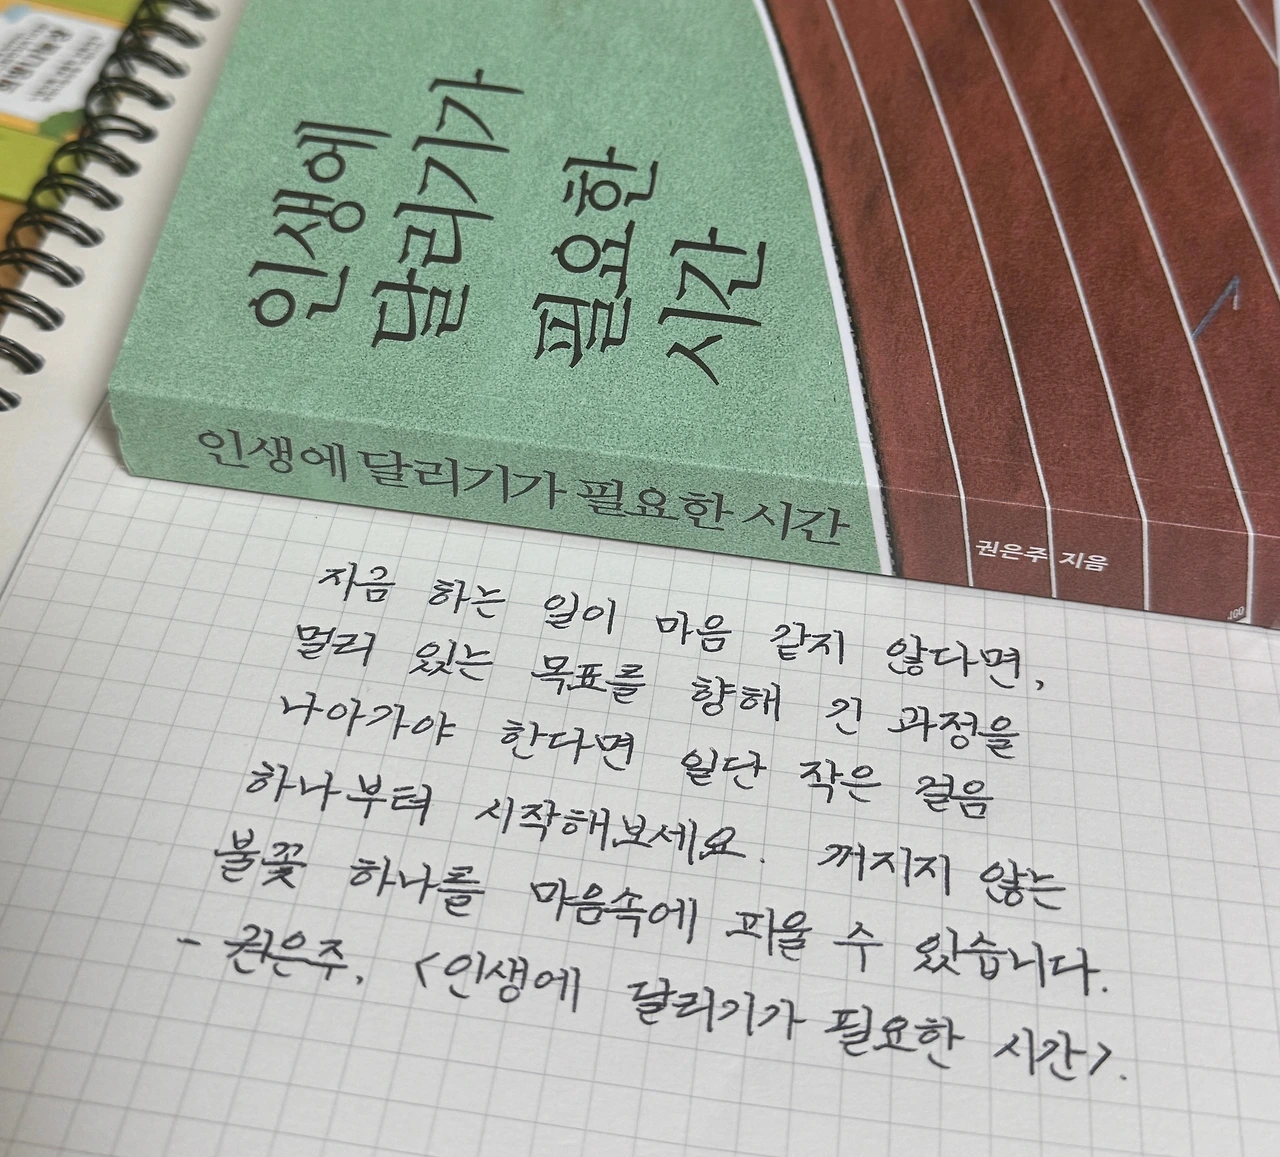 인생에
달리기가
필요한
시간
인생에 달리기가 필요한 시간
권은주 지음
지금 하는 일이 마음 같지 않다면,
멀리 있는 목표를 향해 긴 과정을
나아가야 한다면 일단 작은 걸음
하나부터 시작해보세요. 꺼지지 않는
불꽃 하나를 마음속에 피울 수 있습니다.
- 권은주, <인생에 달리기가 필요한 시간>.